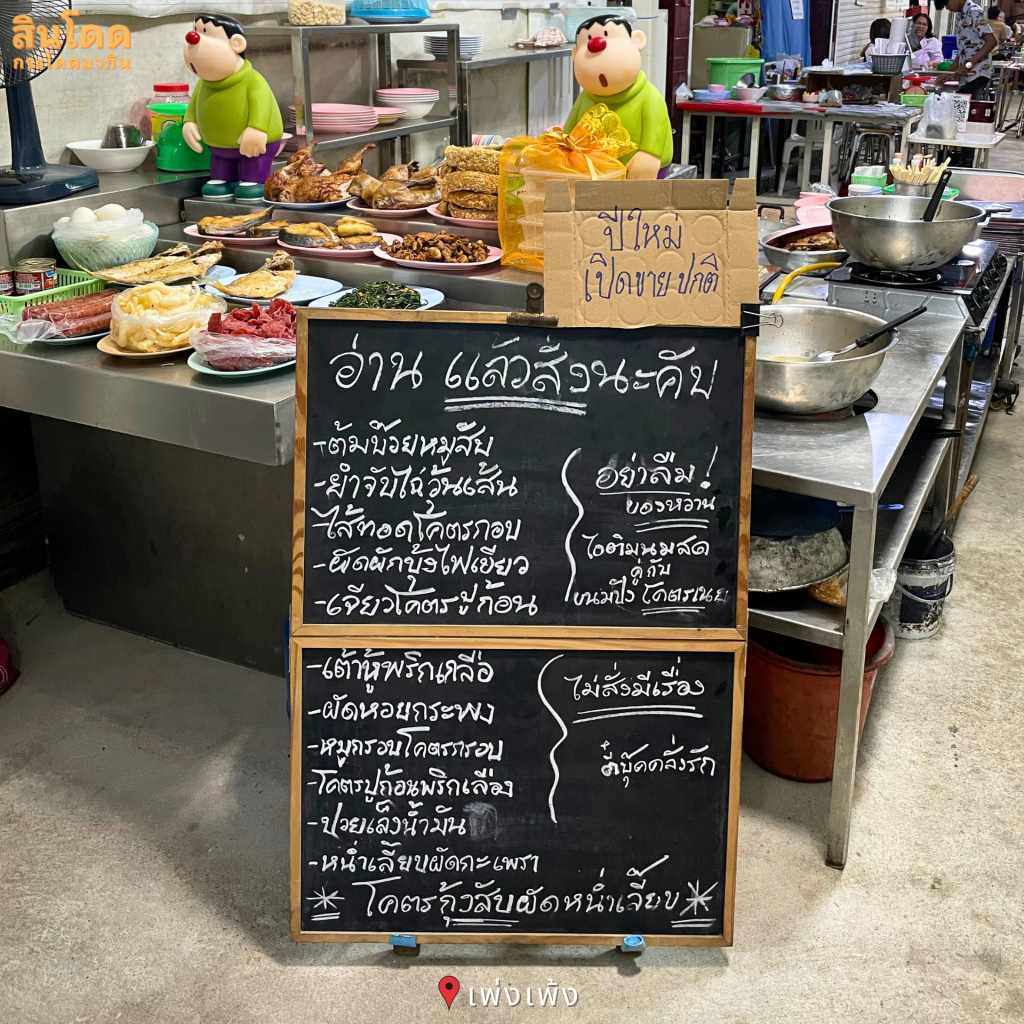 สินโดด
กระโดดมากิน
ปีใหม่
เปิดขายปกติ
อ่าน แล้วสั่งนะคับ
-ต้มบ๊วยหมูสับ
-ยำจับไฉ่วุ้นเส้น
-ไส้ทอดโคตรกอบ
-ผัดผักบุ้งไฟเขียว
-เจียวโคตรปูก้อน
อย่าลืม!
ของหวาน
ไอติมนมสด
คู่กับ
ขนมปัง โคตรเนย
-เต้าหู้พริกเกลือ
-ผัดหอยกระพง
-หมูกรอบโคตรกรอบ
-โคตรปูก้อนพริกเลือง
-ปวยเล็งน้ำมัน
-หน่ำเลี้ยบผัดกะเพรา
ไม่สั่งมีเรื่อง
โคตรกุ้งสับผัดหนำเลี้ยบ
เพ่งเพ้ง